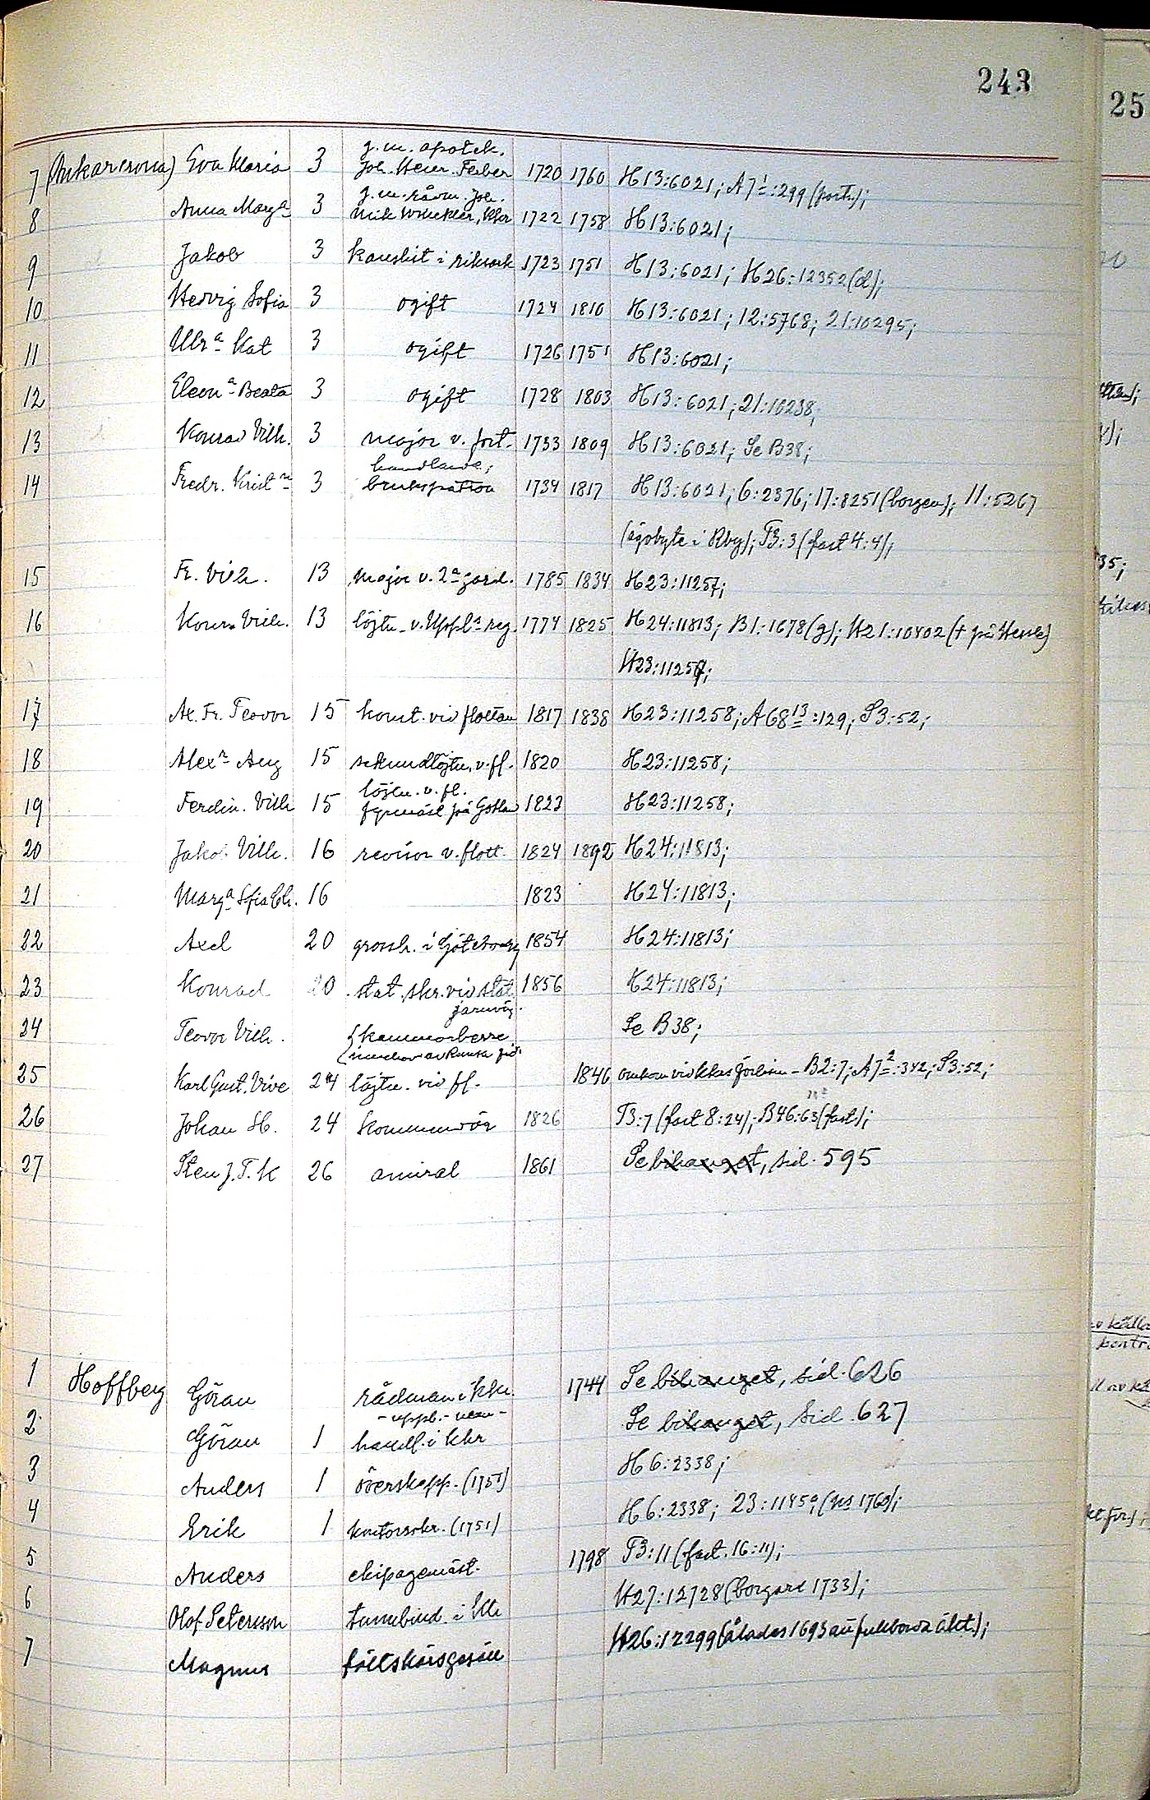 243
25
g.m. apotek.
7 (Ankarcrona) Eva Maria 3 Joh. Heinr. Ferber 1720 1760 H13:6021; A7¹:299 (portr.);
g.m. rådm. Joh.
8 Anna Marg:a 3 Nik. Winckler, Kkr 1722 1758 H13:6021;
9 Jakob 3 kanslist i riksark 1723 1751 H13:6021; H26:12352 (d);
10 Hedvig Sofia 3 ogift 1724 1810 H13:6021; 12:5768; 21:10295;
11 Ulr:a Kat 3 ogift 1726 1751 H13:6021;
12 Eleon:a Beata 3 ogift 1728 1803 H13:6021; 21:10238;
13 Konrad Vilh. 3 major v. fort. 1733 1809 H13:6021; Se B38;
handlande;
14 Fredr. Krist:n 3 brukspatron 1734 1817 H13:6021; 6:2376; 17:8251 (borgen); 11:5267
(ägobyte i Rby); T3:3 (fast 4:4);
15 Fr. Vilh. 13 major v. 2:a gard. 1785 1834 H23:11257;
16 Konr. Vilh. 13 löjtn. v. Uppl:s reg. 1774 1825 H24:11813; B1:1678 (g); H21:10402
H23:11257;
17 Ax. Fr. Teodor 15 konst. vid flottan 1817 1838 H23:11258; A68¹³:129; S3:52;
18 Alex:r Aug 15 sekundlöjtn. v. fl. 1820 H23:11258;
löjtn. v. fl.
19 Ferdin. Vilh 15 fyrmäst på Gotland 1823 H23:11258;
20 Jakob Vilh. 16 revisor v. flott. 1824 1892 H24:11813;
21 Marg:a Sofia Ch. 16 1823 H24:11813;
22 Axel 20 grossh. i Göteborg 1854 H24:11813;
23 Konrad 20 stat. skr. vid stat. 1856 H24:11813;
järnväg.
24 Teodor Vilh. kammarherre Se B38;
innehav. av Runsa
25 Karl Gust. Vive 24 löjtn. vid fl. 1846 omkom vid Kkas förlisn. B2:7; A7²:342; S3:52;
26 Johan H. 24 kommendör 1826 T3:7 (fast 8:24); B46:63 (fast);
27 Sten J. T. K 26 amiral 1861 Se bihanget, sid. 595
1 Hoffberg Göran rådman i Kkr. 1744 Se bihanget, sid. 626
2 Göran 1 handl. i Kkr Se bihanget, sid. 627
3 Anders 1 överskepp. (1751) H6:2338;
4 Erik 1 kontorsskr. (1751) H6:2338; 23:11450;
5 Anders ekipagemäst. 1798 T3:11 (fast. 16:11);
6 Olof Petersson tunnbind. i Kkr H27:12728 (borgare 1733);
7 Magnus fältskärsgesäll H26:12299 (ålades 1693 att fullborda äkt.);